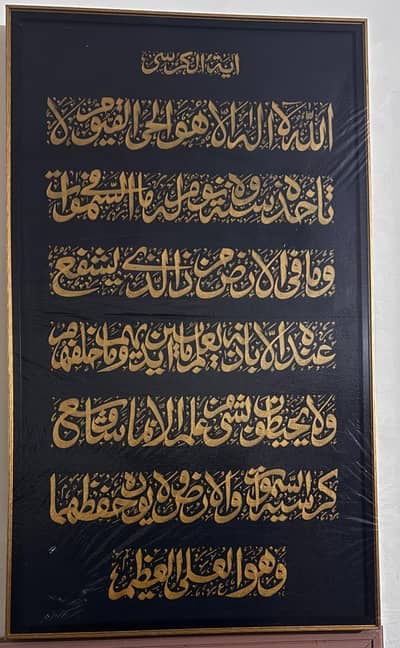 اية الكرسى
الله لا اله الا هو الحى القيوم لا
تاخذه سنة ولا نوم له ما فى السموات
وما فى الارض من ذا الذى يشفع
عنده الا باذنه يعلم ما بين ايديهم وما خلفهم
ولا يحيطون بشىء من علمه الا بما شاء وسع
كرسيه السموات والارض ولا يوده حفظهما
وهو العلى العظيم